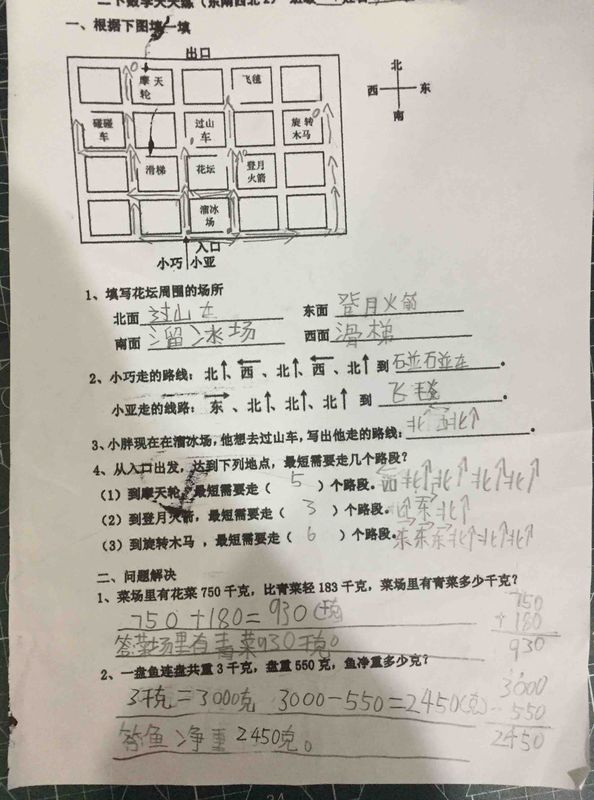 二下数学天天练（东南西北2）
一、根据下图填一填
出口
摩天轮
飞毯
碰碰车
过山车
旋转木马
滑梯
花坛
登月火箭
溜冰场
入口
小巧 小亚
北
西 东
南
1、填写花坛周围的场所
北面 过山车 东面 登月火箭
南面 溜冰场 西面 滑梯
2、小巧走的路线：北↑、西←、北↑、西←、北↑到 碰碰车 。
小亚走的线路：东→、北↑、北↑、北↑ 到 飞毯 。
3、小胖现在在溜冰场，他想去过山车，写出他走的路线：北↑西←北↑。
4、从入口出发，达到下列地点，最短需要走几个路段？
（1）到摩天轮，最短需要走（ 5 ）个路段。西←北↑北↑北↑北↑
（2）到登月火箭，最短需要走（ 3 ）个路段。北↑东→北↑
（3）到旋转木马，最短需要走（ 6 ）个路段。东→东→东→北↑北↑北↑
二、问题解决
1、菜场里有花菜750千克，比青菜轻183千克，菜场里有青菜多少千克？
750+180=930(千克)
答菜场里有青菜930千克。
750
+180
930
2、一盘鱼连盘共重3千克，盘重550克，鱼净重多少克？
3千克=3000克 3000-550=2450(克)
答鱼净重2450克。
3000
-550
2450